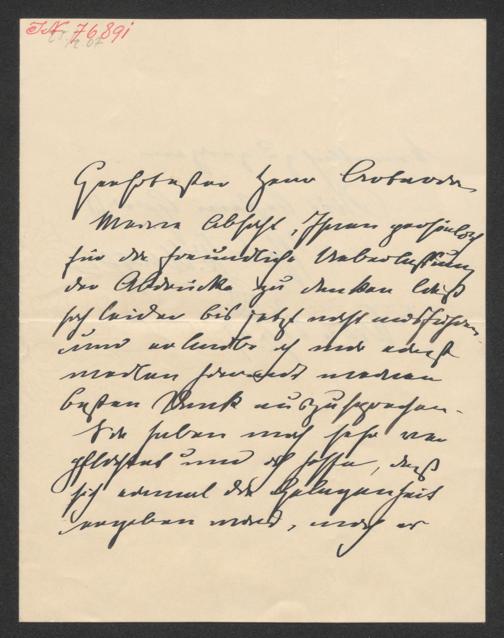 IN 76891
Geehrtester Herr
Meine Absicht, Ihnen persönlich
für die freundliche Ueberlassung
der Abdrücke zu danken läßt
sich leider bis jetzt nicht ausführen
und erlaube ich mir einst
weilen hiermit meinen
besten Dank auszusprechen.
Sie haben mich sehr ver
pflichtet und ich hoffe, daß
sich einmal die Gelegenheit
ergeben wird, mich er